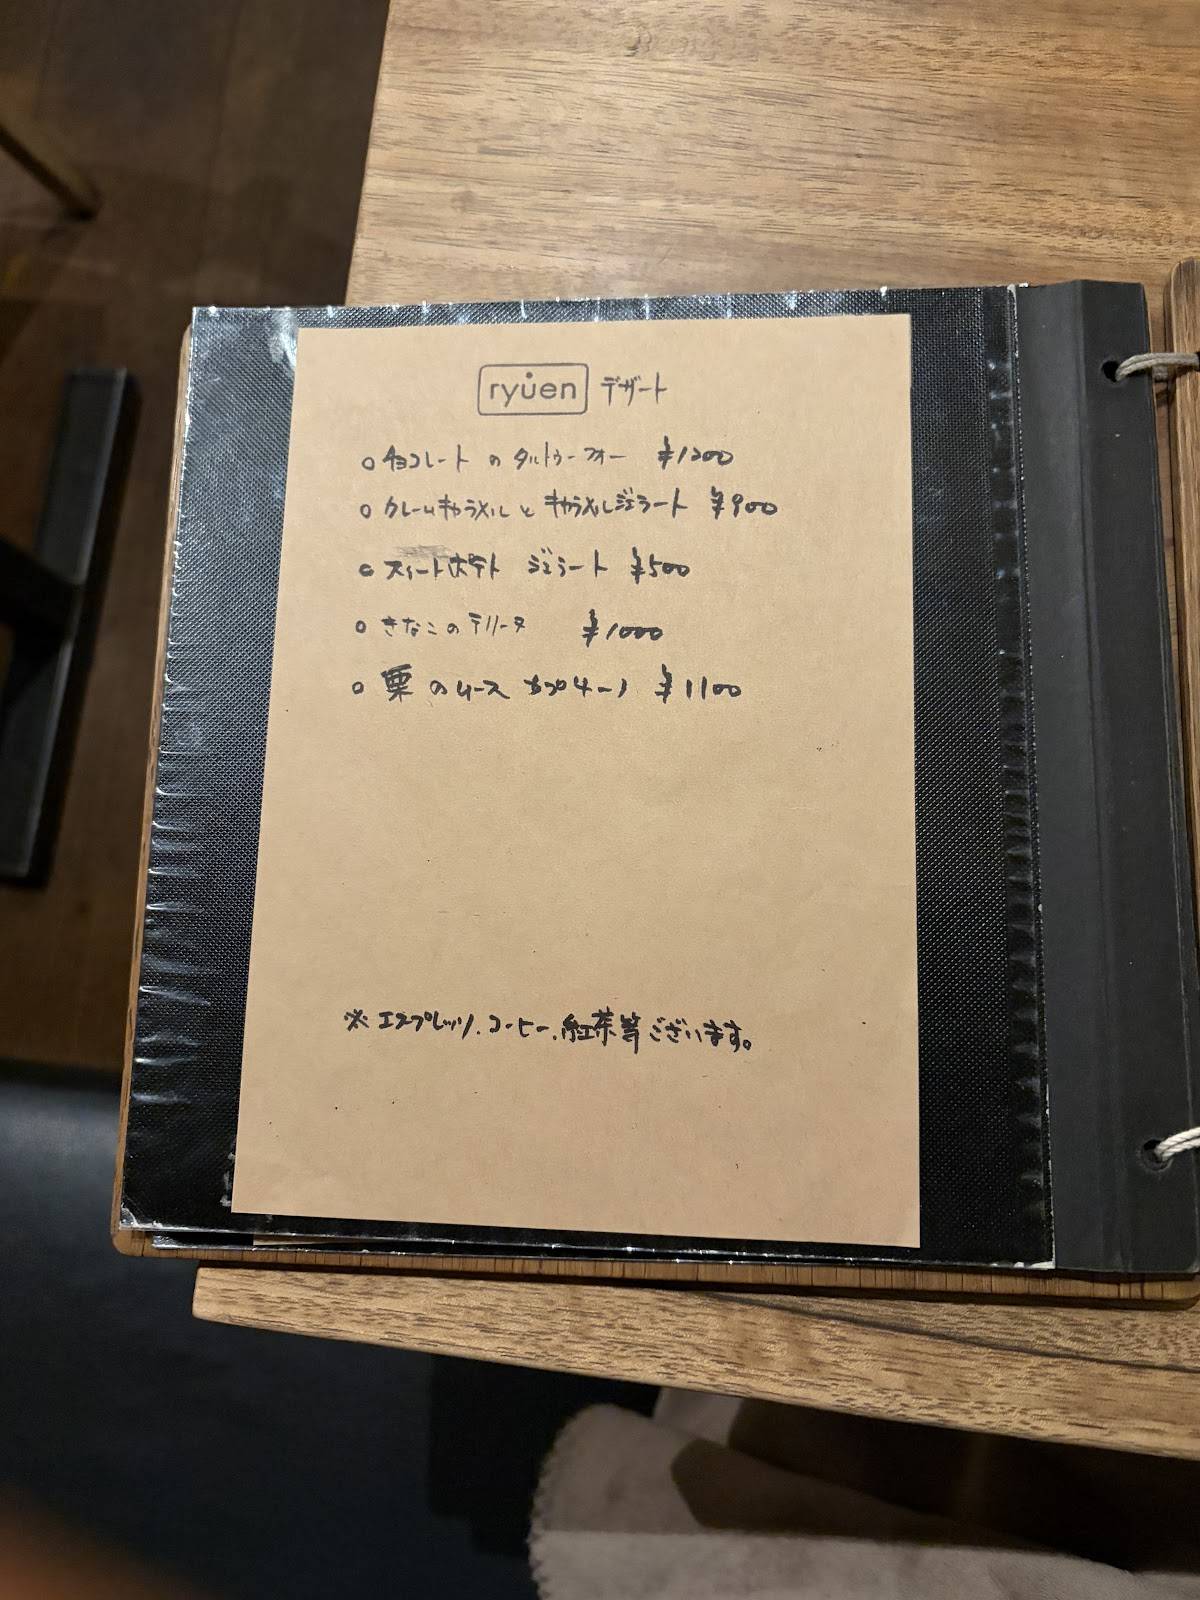 ryuen デザート
○ チョコレートのタルトゥーフォー ¥1200
○ クレームキャラメルとキャラメルジェラート ¥900
○ スイートポテト ジェラート ¥500
○ きなこのテリーヌ ¥1000
○ 栗のムース カプチーノ ¥1100
※ エスプレッソ、コーヒー、紅茶等ございます。